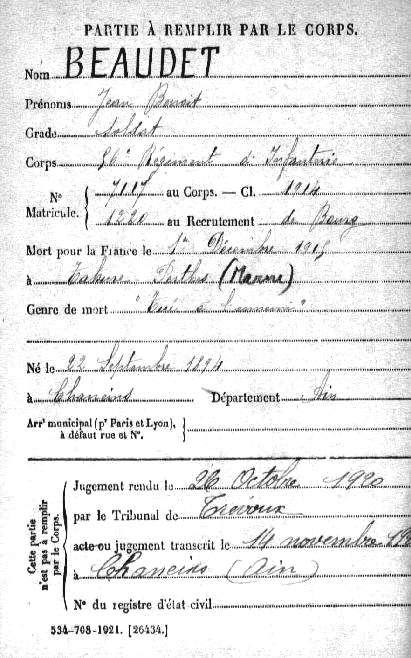 PARTIE À REMPLIR PAR LE CORPS.
Nom BEAUDET
Prénoms Jean Benoit
Grade Soldat
Corps 56e Régiment d'Infanterie
N° Matricule. 7117 au Corps. — Cl. 1914
1220 au Recrutement de Bourg
Mort pour la France le 1er Décembre 1915
à Tahure Perthes (Marne)
Genre de mort "Tué à l'ennemi"
Né le 22 Septembre 1894
à Chaneins Département Ain
Arrt municipal (pr Paris et Lyon),
à défaut rue et N°.
Cette partie
n'est pas à remplir
par le Corps.
Jugement rendu le 26 Octobre 1920
par le Tribunal de Trévoux
acte ou jugement transcrit le 14 novembre
à Chaneins (Ain)
N° du registre d'état civil
534-708-1921. [26434.]